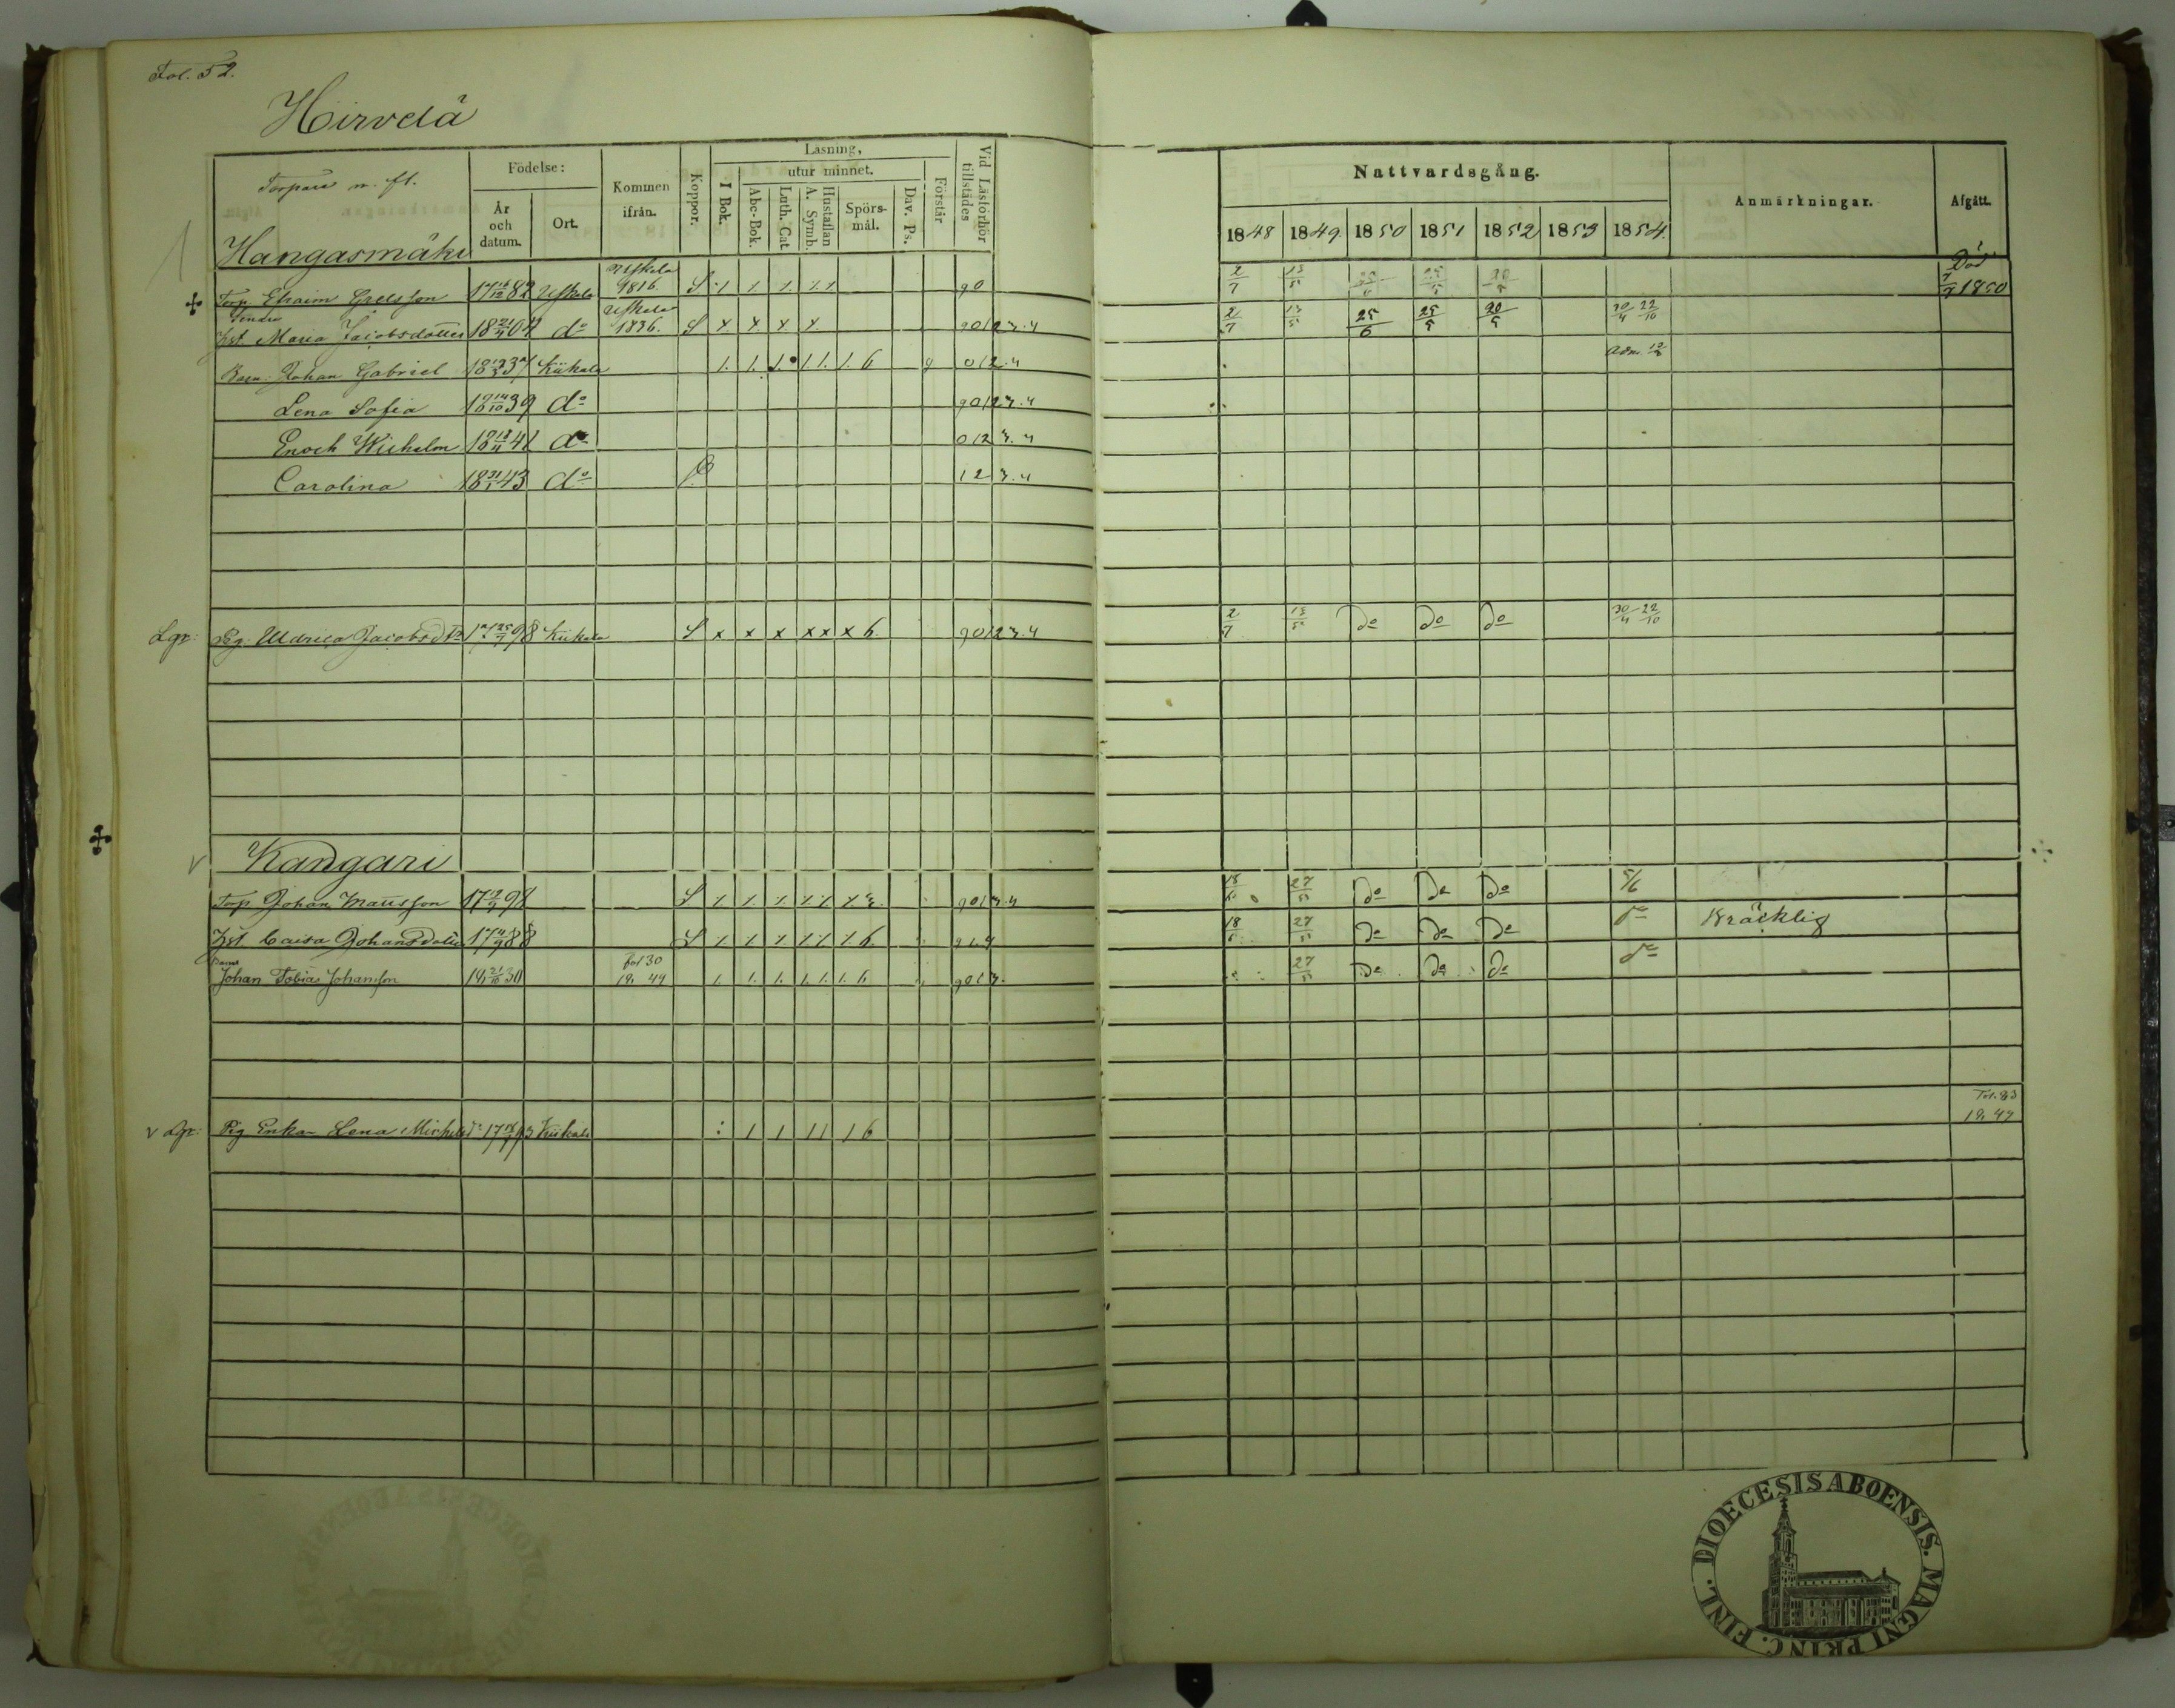 Fol. 52.
Hirvelä
Torpare m. fl.
Födelse:
År och datum.
Ort.
Kommen ifrån.
Koppor.
Läsning,
I Bok.
utur minnet.
Abc-Bok.
Luth. Cat.
Hustaflan A. Symb.
Spörsmål.
Dav. Ps.
Förstår
Vid Läsförhör tillstädes
Nattvardsgång.
1848 1849. 1850 1851 1852 1853 1854.
Anmärkningar.
Afgått.
Hangasmäki
Torp. Efraim 17 82 Uskela Uskela 1816. S 90 2/7 13/5 Död 1850
Enka
Hst. Maria Jacobsdotter do Uskela 1836. S x x x x 9012 3.4 2/7 13/5 25/6 25/5 20/5 30/4 22/10
Barn: Johan Gabriel 18 37 Kiikala 1. 1. 1. 1. 1. 1. 6 012.4 Adm.
Lena Sofia 18 14/10 39 do 9012 3.4
Enoch Wilhelm do 012 3.4
Carolina 18 31/1 43 do 12 3.4
Lgr: Pig. Uldrica Jacobsdtr 98 Kiikala S x x x x x x 6. 9012 3.4 2/7 13/5 Do Do Do 30/4 22/10
Kangari
v
Torp. Johan Mattsson 17 98 S 18/6 27/5 Do Do Do 5/6
Hst. Caisa Johansdotter 17 88 S 6. 18/6 27/5 Do Do Do do Bräcklig
Barn
Johan Tobias Johansson 18 21/10 30 fol 130 18 49 1. 1. 1. 1. 1. 1. 6 27/5 Do Do Do do
v Lgr: Pig Enkan Lena Michelsdr 17 93 Kiikala 1 1 1 1 1 6 Fol. 83 18 49
DIOECESIS ABOENSIS. MAGNI PRINC. FINL.